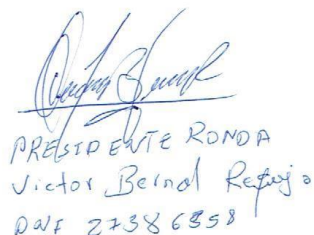 PRESIDENTE RONDA
Victor Bernal
DNI 27386958